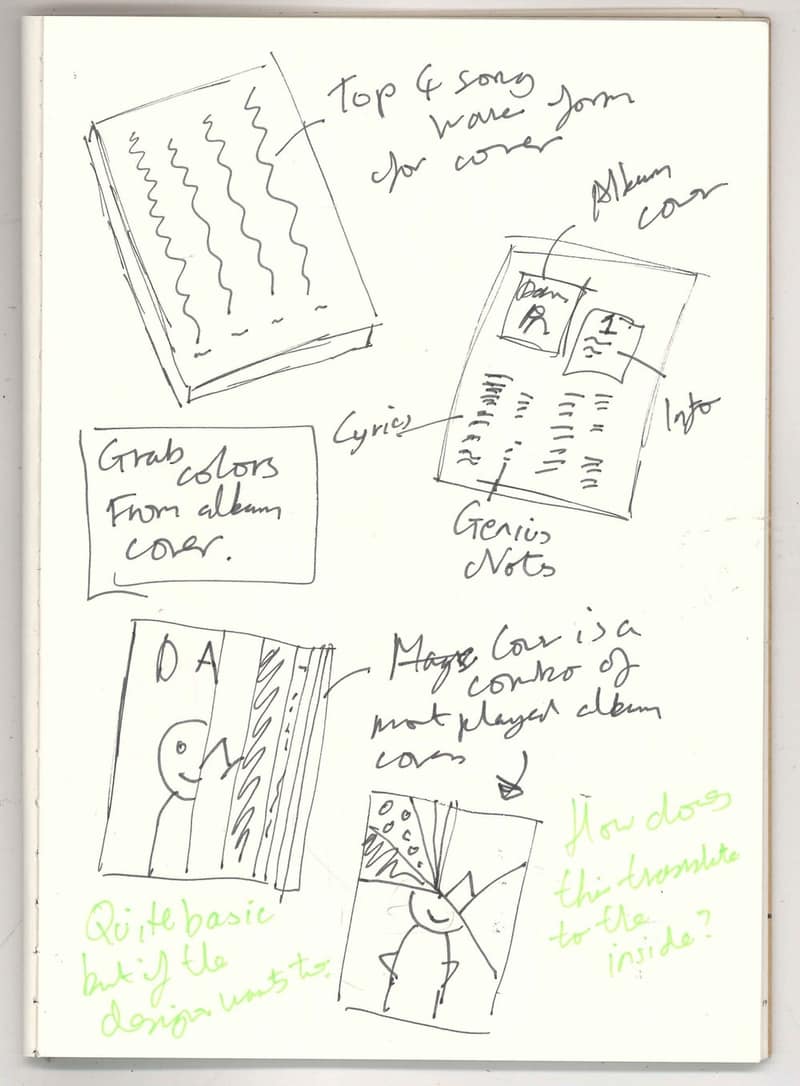 Top 4 song
wave form
for cover
Album
cover
1
Info
Lyrics
Genius
Notes
Grab
colors
From album
cover.
D A
Cover is a
combo of
most played album
covers
How does
this translate
to the
inside?
Quite basic
but if the
designer wants to.